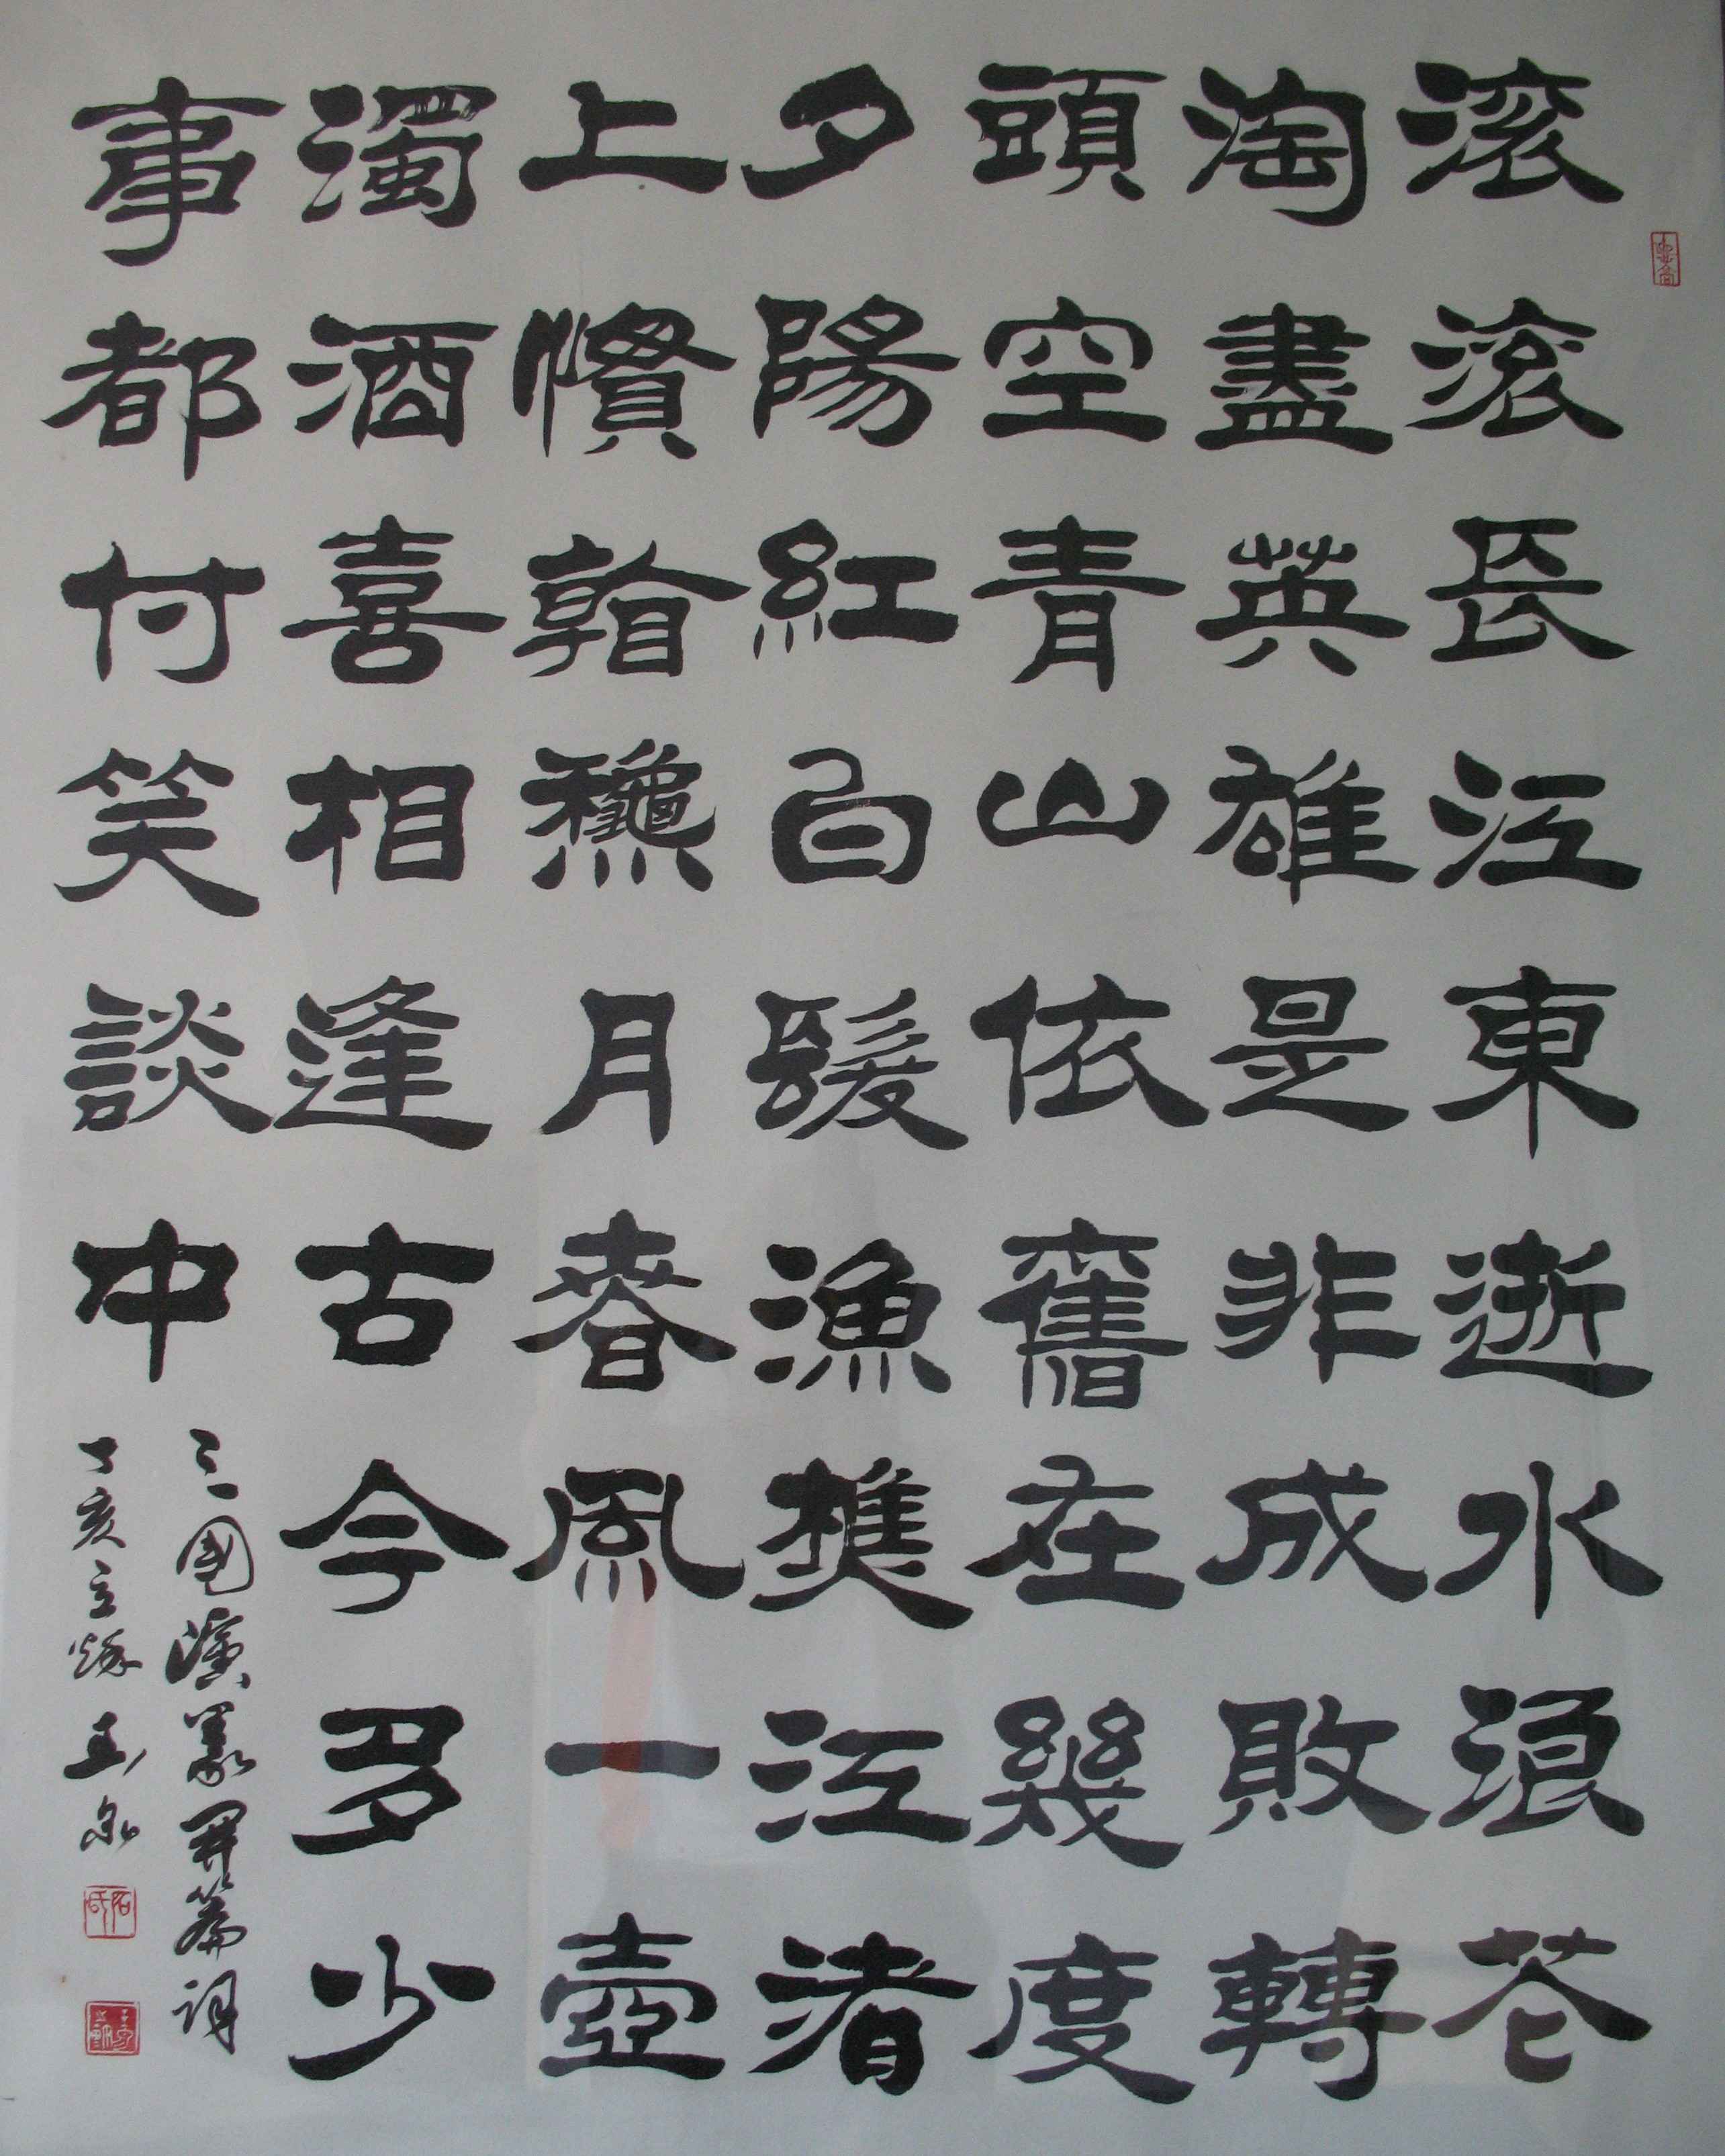 滚滚長江東逝水浪花
淘盡英雄是非成敗轉
頭空青山依舊在幾度
夕陽紅白髮漁樵江渚
上慣看龝月春風一壺
濁酒喜相逢古今多少
事都付笑談中
三國演義開篇詞
丁亥立秋玉泉